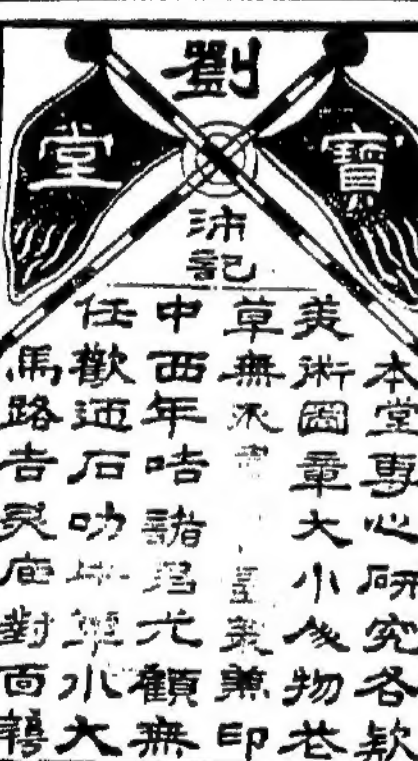 劉
寶堂
沛記
本堂專心研究各欵
美術圖章大小人物花
草無不兼印
中西年咭諸君光顧無
任歡迎石叻大
馬路吉灵庙對面